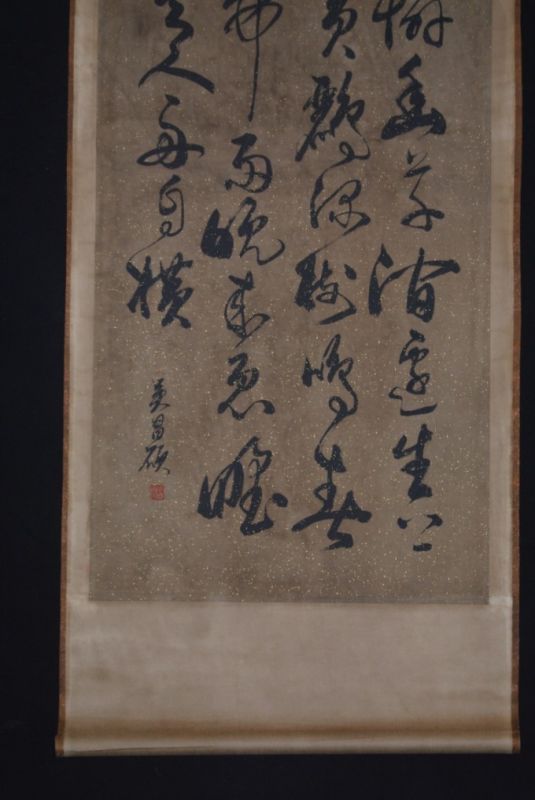 憐幽草澗邊生上
黃鸝深樹鳴春
帶雨晚來急野
無人舟自横
吳昌碩